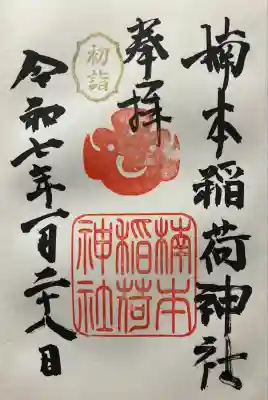 楠本稲荷神社
奉拝
初詣
楠本
稲荷
神社
令和七年一月二十八日